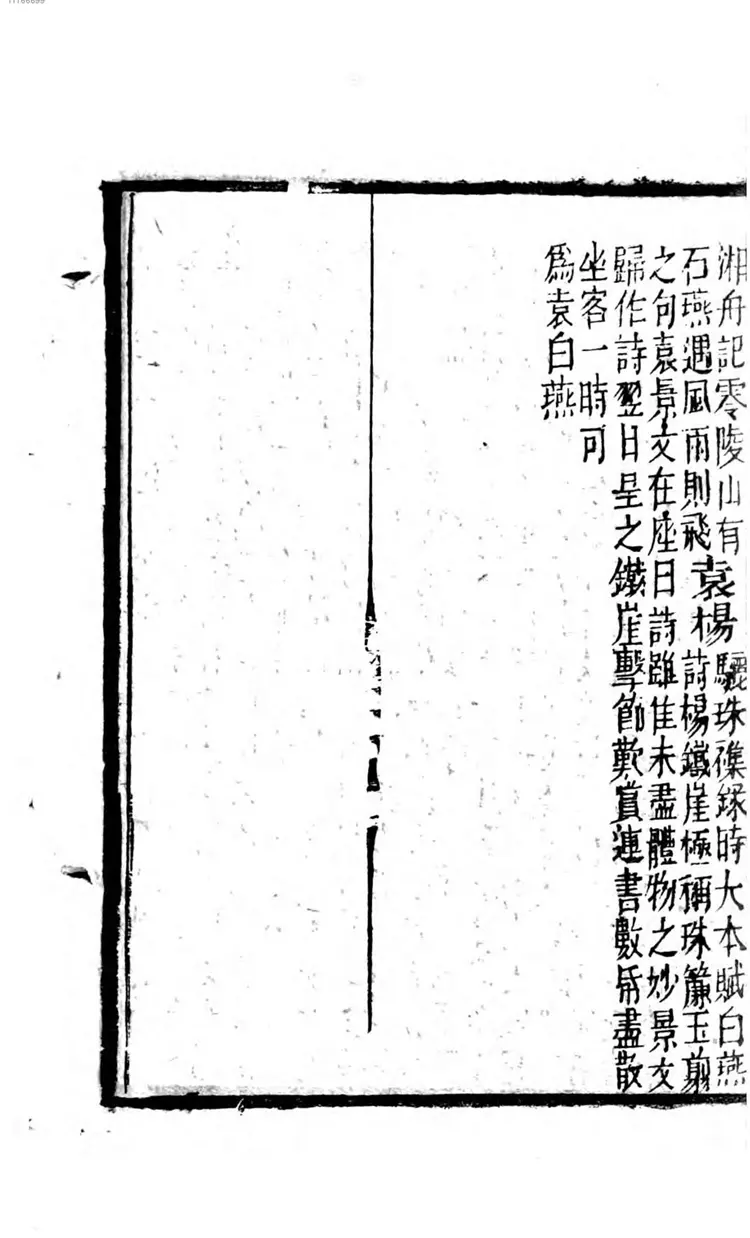 湘舟記零陵山有
石燕遇風雨則飛
袁楊
驪珠襍録時大本賦白燕
詩楊鐵崖極稱珠簾玉剪
之句袁景文在座曰詩雖佳未盡體物之妙景文
歸作詩翌日呈之鐵崖擊節歎賞連書數帋盡散
坐客一時可
爲袁白燕